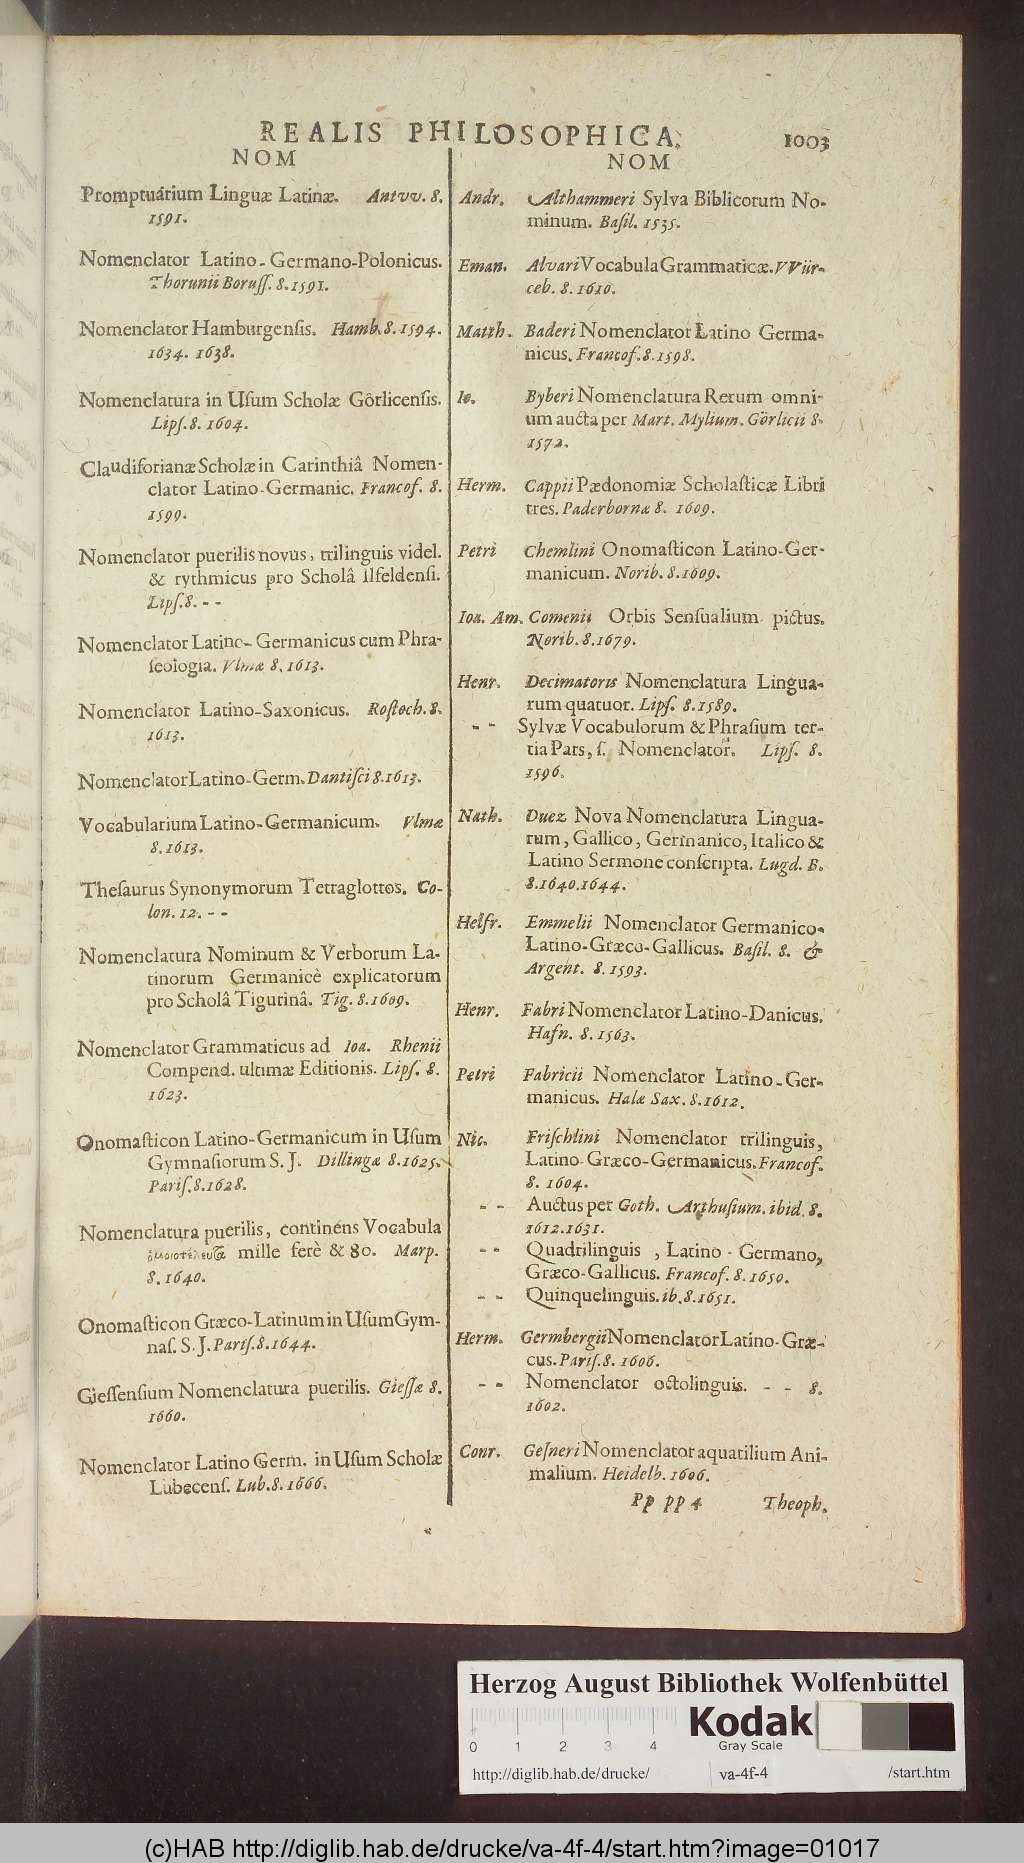 REALIS PHILOSOPHICA.
1003
NOM
Promptuárium Linguæ Latinæ. Antvv. 8.
1591.
Nomenclator Latino-Germano-Polonicus.
Thorunii Boruſſ. 8. 1591.
Nomenclator Hamburgenſis. Hamb. 8. 1594.
1634. 1638.
Nomenclatura in Uſum Scholæ Gôrlicenſis.
Lipſ. 8. 1604.
Claudiforianæ Scholæ in Carinthiâ Nomen-
clator Latino-Germanic. Francof. 8.
1599.
Nomenclator puerilis novus, trilinguis videl.
& rythmicus pro Scholâ Ilfeldenſi.
Lipſ. 8. - -
Nomenclator Latino-Germanicus cum Phra-
ſeologia. Vlmæ 8. 1613.
Nomenclator Latino-Saxonicus. Roſtoch. 8.
1613.
Nomenclator Latino-Germ. Dantiſci 8. 1613.
Vocabularium Latino-Germanicum. Vlmæ
8. 1613.
Theſaurus Synonymorum Tetraglottos. Co-
lon. 12. - -
Nomenclatura Nominum & Verborum La-
tinorum Germanicè explicatorum
pro Scholâ Tigurinâ. Tig. 8. 1609.
Nomenclator Grammaticus ad Ioa. Rhenii
Compend. ultimæ Editionis. Lipſ. 8.
1623.
Onomaſticon Latino-Germanicum in Uſum
Gymnaſiorum S. J. Dillingæ 8. 1625.
Pariſ. 8. 1628.
Nomenclatura puerilis, continens Vocabula
ὁμοιοτέλευτα mille ferè & 80. Marp.
8. 1640.
Onomaſticon Græco-Latinum in Uſum Gym-
naſ. S. J. Pariſ. 8. 1644.
Gieſſenſium Nomenclatura puerilis. Gieſſæ 8.
1660.
Nomenclator Latino Germ. in Uſum Scholæ
Lubecenſ. Lub. 8. 1666.
NOM
Andr. Althammeri Sylva Biblicorum No-
minum. Baſil. 1535.
Eman. Alvari Vocabula Grammaticæ. VVür-
ceb. 8. 1610.
Matth. Baderi Nomenclator Latino Germa-
nicus. Francof. 8. 1598.
Io. Byberi Nomenclatura Rerum omni-
um aucta per Mart. Mylium. Görlicii 8.
1572.
Herm. Cappii Pædonomiæ Scholaſticæ Libri
tres. Paderbornæ 8. 1609.
Petri Chemlini Onomaſticon Latino-Ger-
manicum. Norib. 8. 1609.
Ioa. Am. Comenii Orbis Senſualium pictus.
Norib. 8. 1679.
Henr. Decimatoris Nomenclatura Lingua-
rum quatuor. Lipſ. 8. 1589.
- - Sylvæ Vocabulorum & Phraſium ter-
tia Pars, ſ. Nomenclator. Lipſ. 8.
1596.
Nath. Duez Nova Nomenclatura Lingua-
rum, Gallico, Germanico, Italico &
Latino Sermone conſcripta. Lugd. B.
8. 1640. 1644.
Helfr. Emmelii Nomenclator Germanico-
Latino-Græco-Gallicus. Baſil. 8. &
Argent. 8. 1593.
Henr. Fabri Nomenclator Latino-Danicus.
Hafn. 8. 1563.
Petri Fabricii Nomenclator Latino-Ger-
manicus. Halæ Sax. 8. 1612.
Nic. Friſchlini Nomenclator trilinguis,
Latino-Græco-Germanicus. Francof.
8. 1604.
- - Auctus per Goth. Arthuſium. ibid. 8.
1612. 1631.
- - Quadrilinguis, Latino-Germano,
Græco-Gallicus. Francof. 8. 1650.
- - Quinquelinguis. ib. 8. 1651.
Herm. Germbergii Nomenclator Latino-Græ-
cus. Pariſ. 8. 1606.
- - Nomenclator octolinguis. - - 8.
1602.
Conr. Geſneri Nomenclator aquatilium Ani-
malium. Heidelb. 1606.
Pp pp 4 Theoph.
Herzog August Bibliothek Wolfenbüttel
0 1 2 3 4
Kodak
Gray Scale
http://diglib.hab.de/drucke/ va-4f-4 /start.htm
(c)HAB http://diglib.hab.de/drucke/va-4f-4/start.htm?image=01017